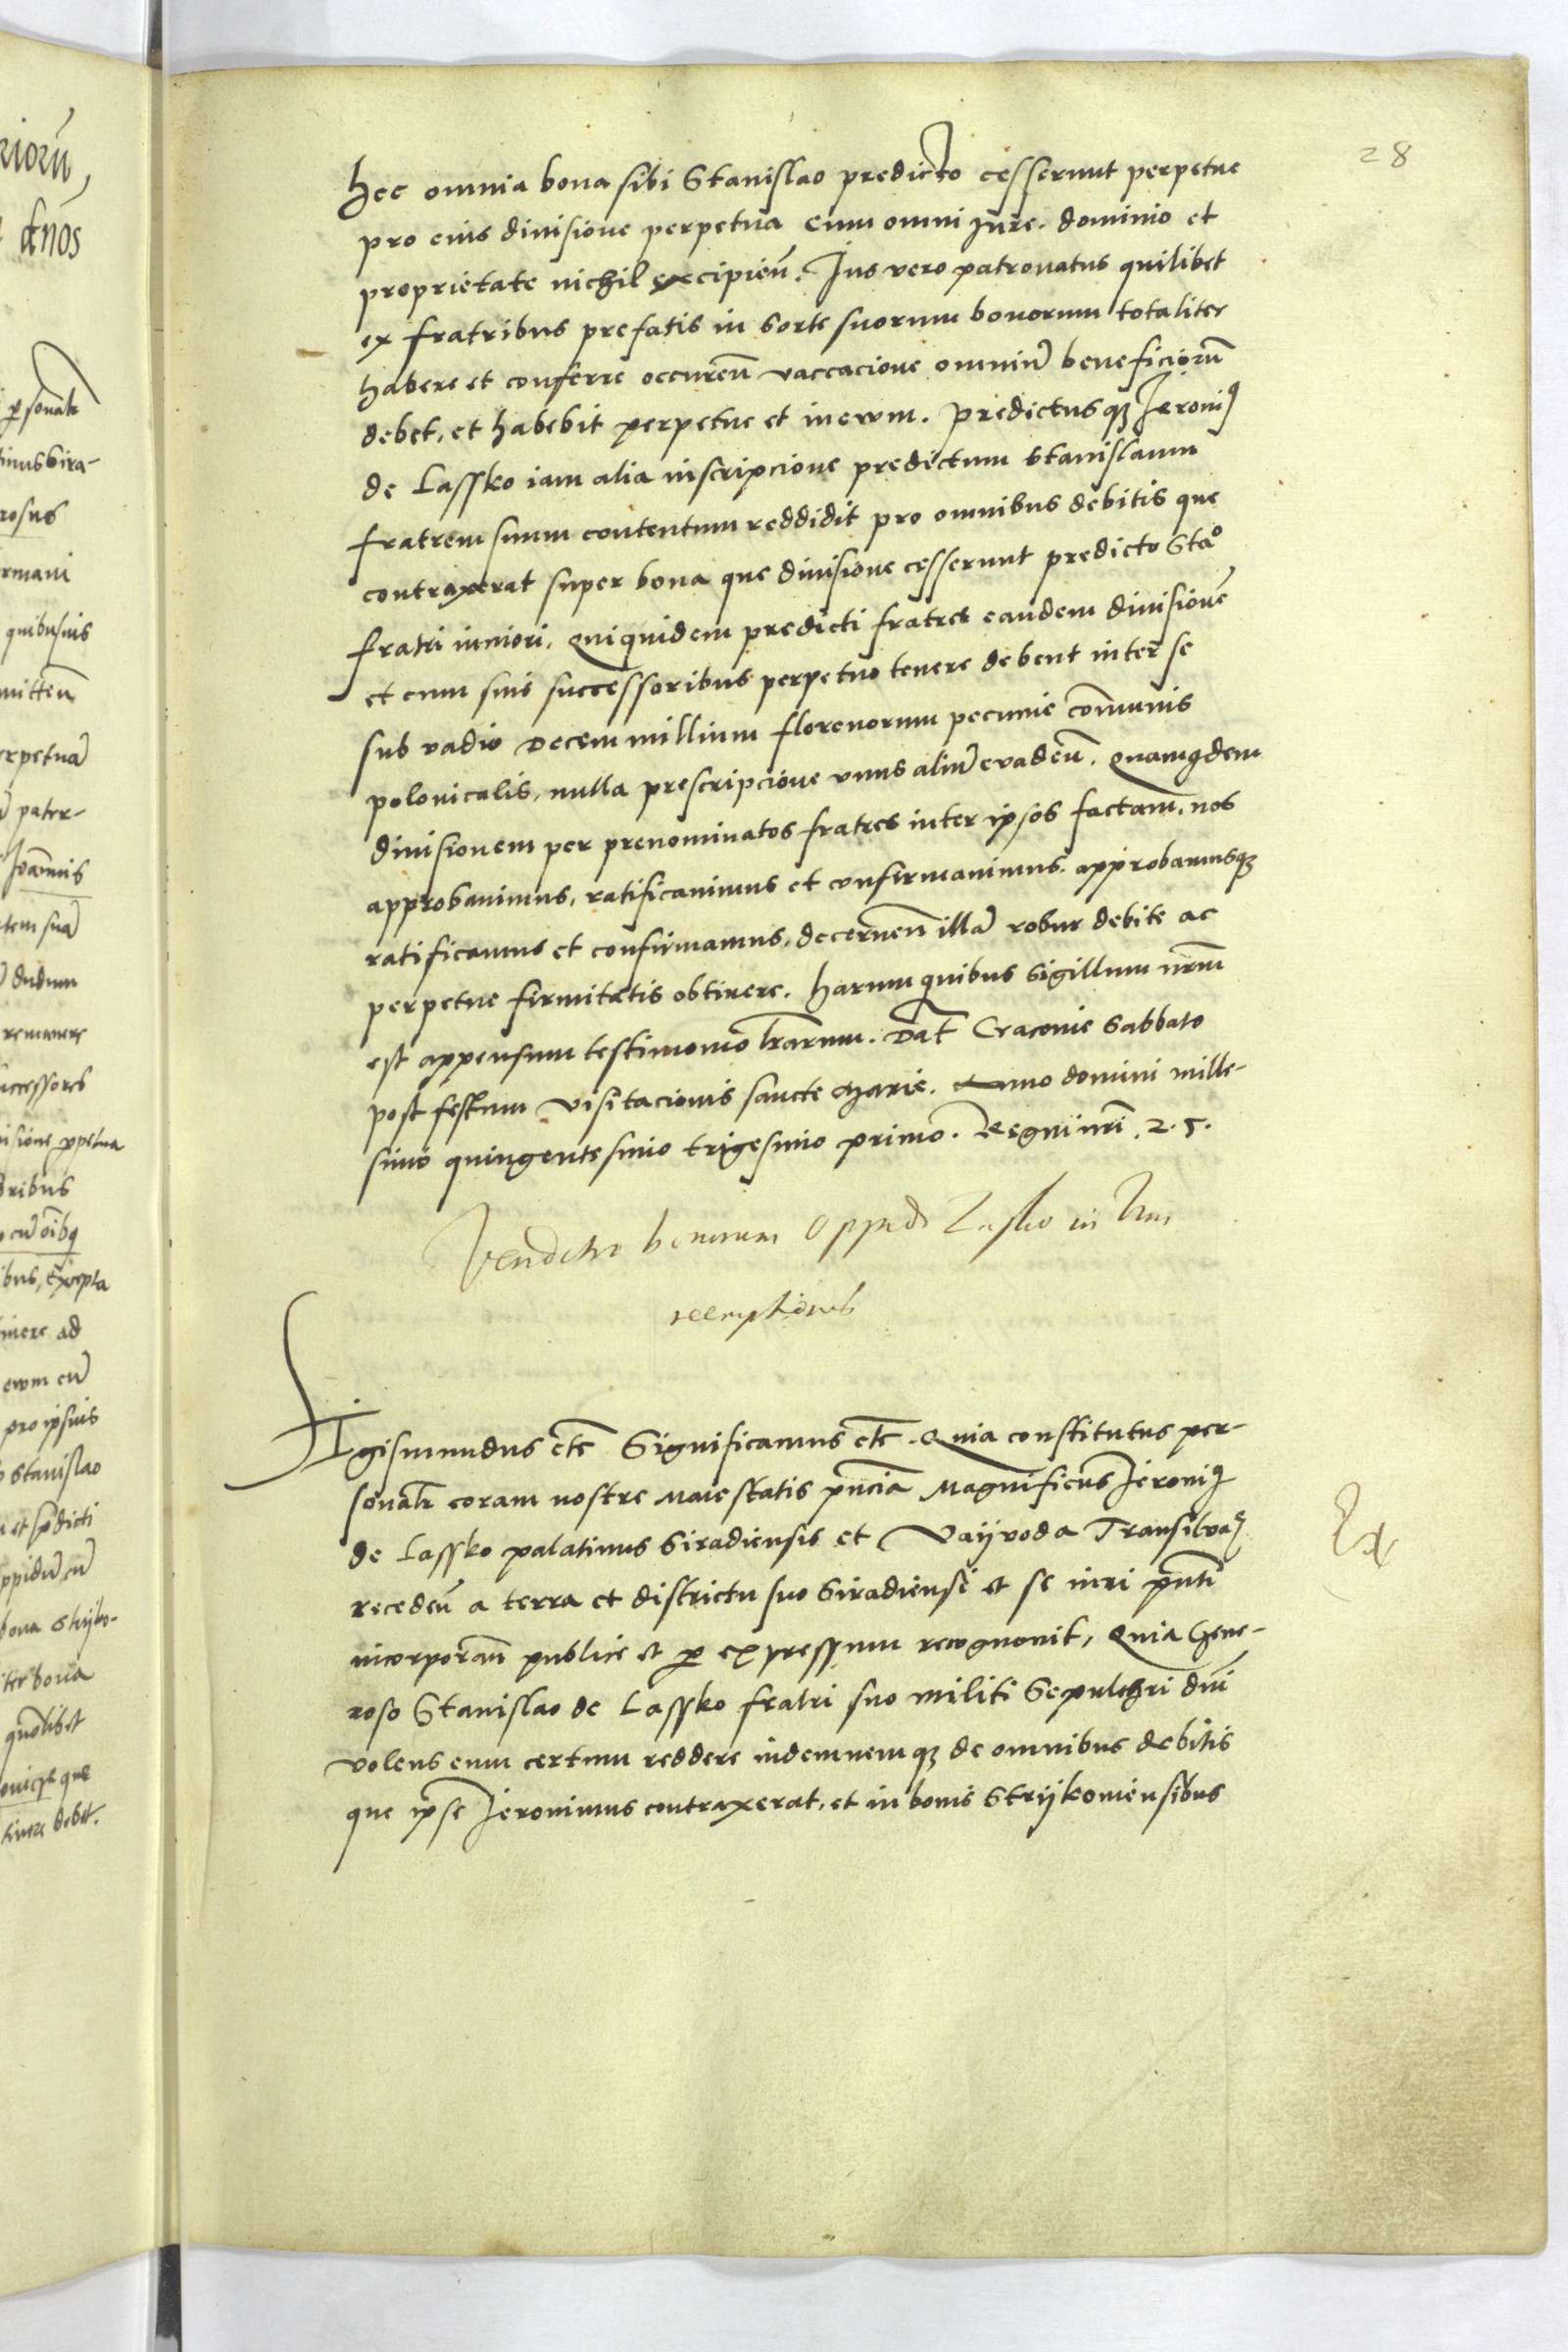 28
hec omnia bona sibi Stanislao predicto cesserunt perpetue
pro eius divisione perpetua cum omni Iure. dominio et
proprietate nichil excipien̄. Ius vero patronatus quilibet
ex fratribus prefatis in sorte suorum bonorum totaliter
habere et conferre occuren̄ vaccacione omniū beneficiorū
debet, et habebit perpetue et in evum. Predictusqꝫ Ieroniꝰ
de Lassko iam alia inscripcione predictum Stanislaum
fratrem suum contentum reddidit pro omnibus debitis que
contraxerat super bona que divisione cesserunt predicto Sta͏ͦ
fratri iuniori. Quiquidem predicti fratres eandem divisionē
et cum suis successoribus perpetuo tenere debent inter se
sub vadio Decem millium florenorum pecunie com̄unis
polonicalis, nulla prescripcione unus aliū evaden̄. Quamqdem
divisionem per prenominatos fratres inter ipsos factam, nos
approbavimus, ratificavimus et confirmavimus. approbamusqꝫ
ratificamus et confirmamus, decernen̄ illā robur debite ac
perpetue firmitatis obtinere. Harum quibus Sigillum nr̄um
est appensum testimonio l̄rarum. Dat̄ Cracovie Sabbato
post festum Visitacionis Sancte Marie. Anno domini mille-
simo quingentesimo trigesimo primo. Regni nr̄i .25.
Venditio bonorum Oppidi Lasko in Vim
reemptionis
Sigismundus etc̄ Significamus etc̄. Quia constitutus per-
sonalr̄ coram nostre Maiestatis pn̄cia Magnificus Ieroniꝰ
de Lassko palatinus Siradiensis et Vayvoda Transilvaꝰ
receden̄ a terra et districtu suo Siradiensi et se iuri pn̄ti
incorporan̄ publice et per expressum recognovit, Quia Gene-
roso Stanislao de Lassko fratri suo militi Sepulchri dn̄i
volens eum certum reddere indemnemqꝫ de omnibus debitis
que ip̄se Ieronimus contraxerat, et in bonis Strijkoviensibus
Ex